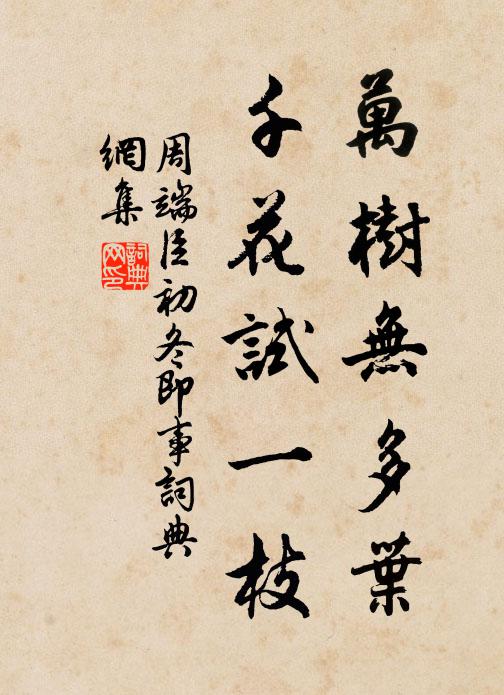 萬樹無多葉
千花試一枝
周端臣初冬即事詞典
網集
詞典
网印